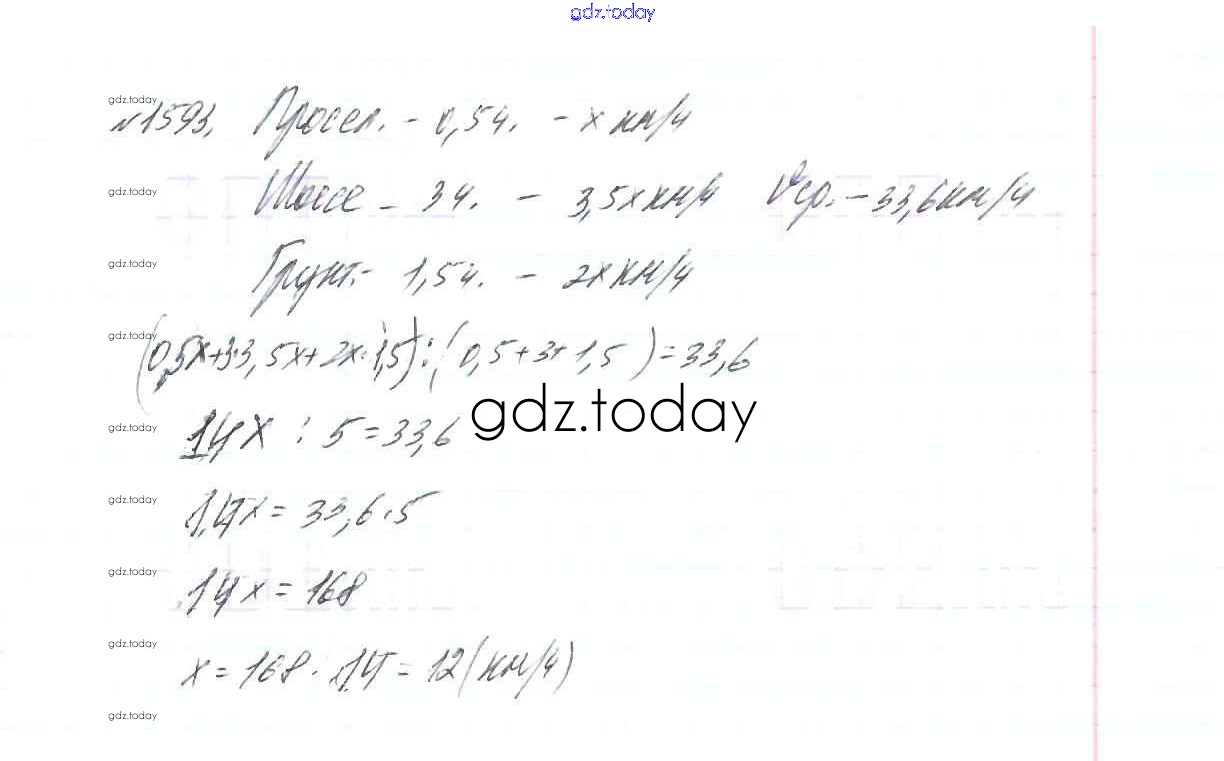 gdz.today
gdz.today
№1593. Просел. - 0,5ч. - х км/ч
gdz.today
Шоссе - 3ч. - 3,5х км/ч Vср. - 33,6км/ч
gdz.today
Грунт. - 1,5ч. - 2х км/ч
gdz.today
(0,5х+3·3,5х+2х·1,5):(0,5+3+1,5)=33,6
gdz.today
gdz.today
14х : 5=33,6
gdz.today
14х = 33,6·5
gdz.today
14х = 168
gdz.today
х = 168 : 14 = 12(км/ч)
gdz.today